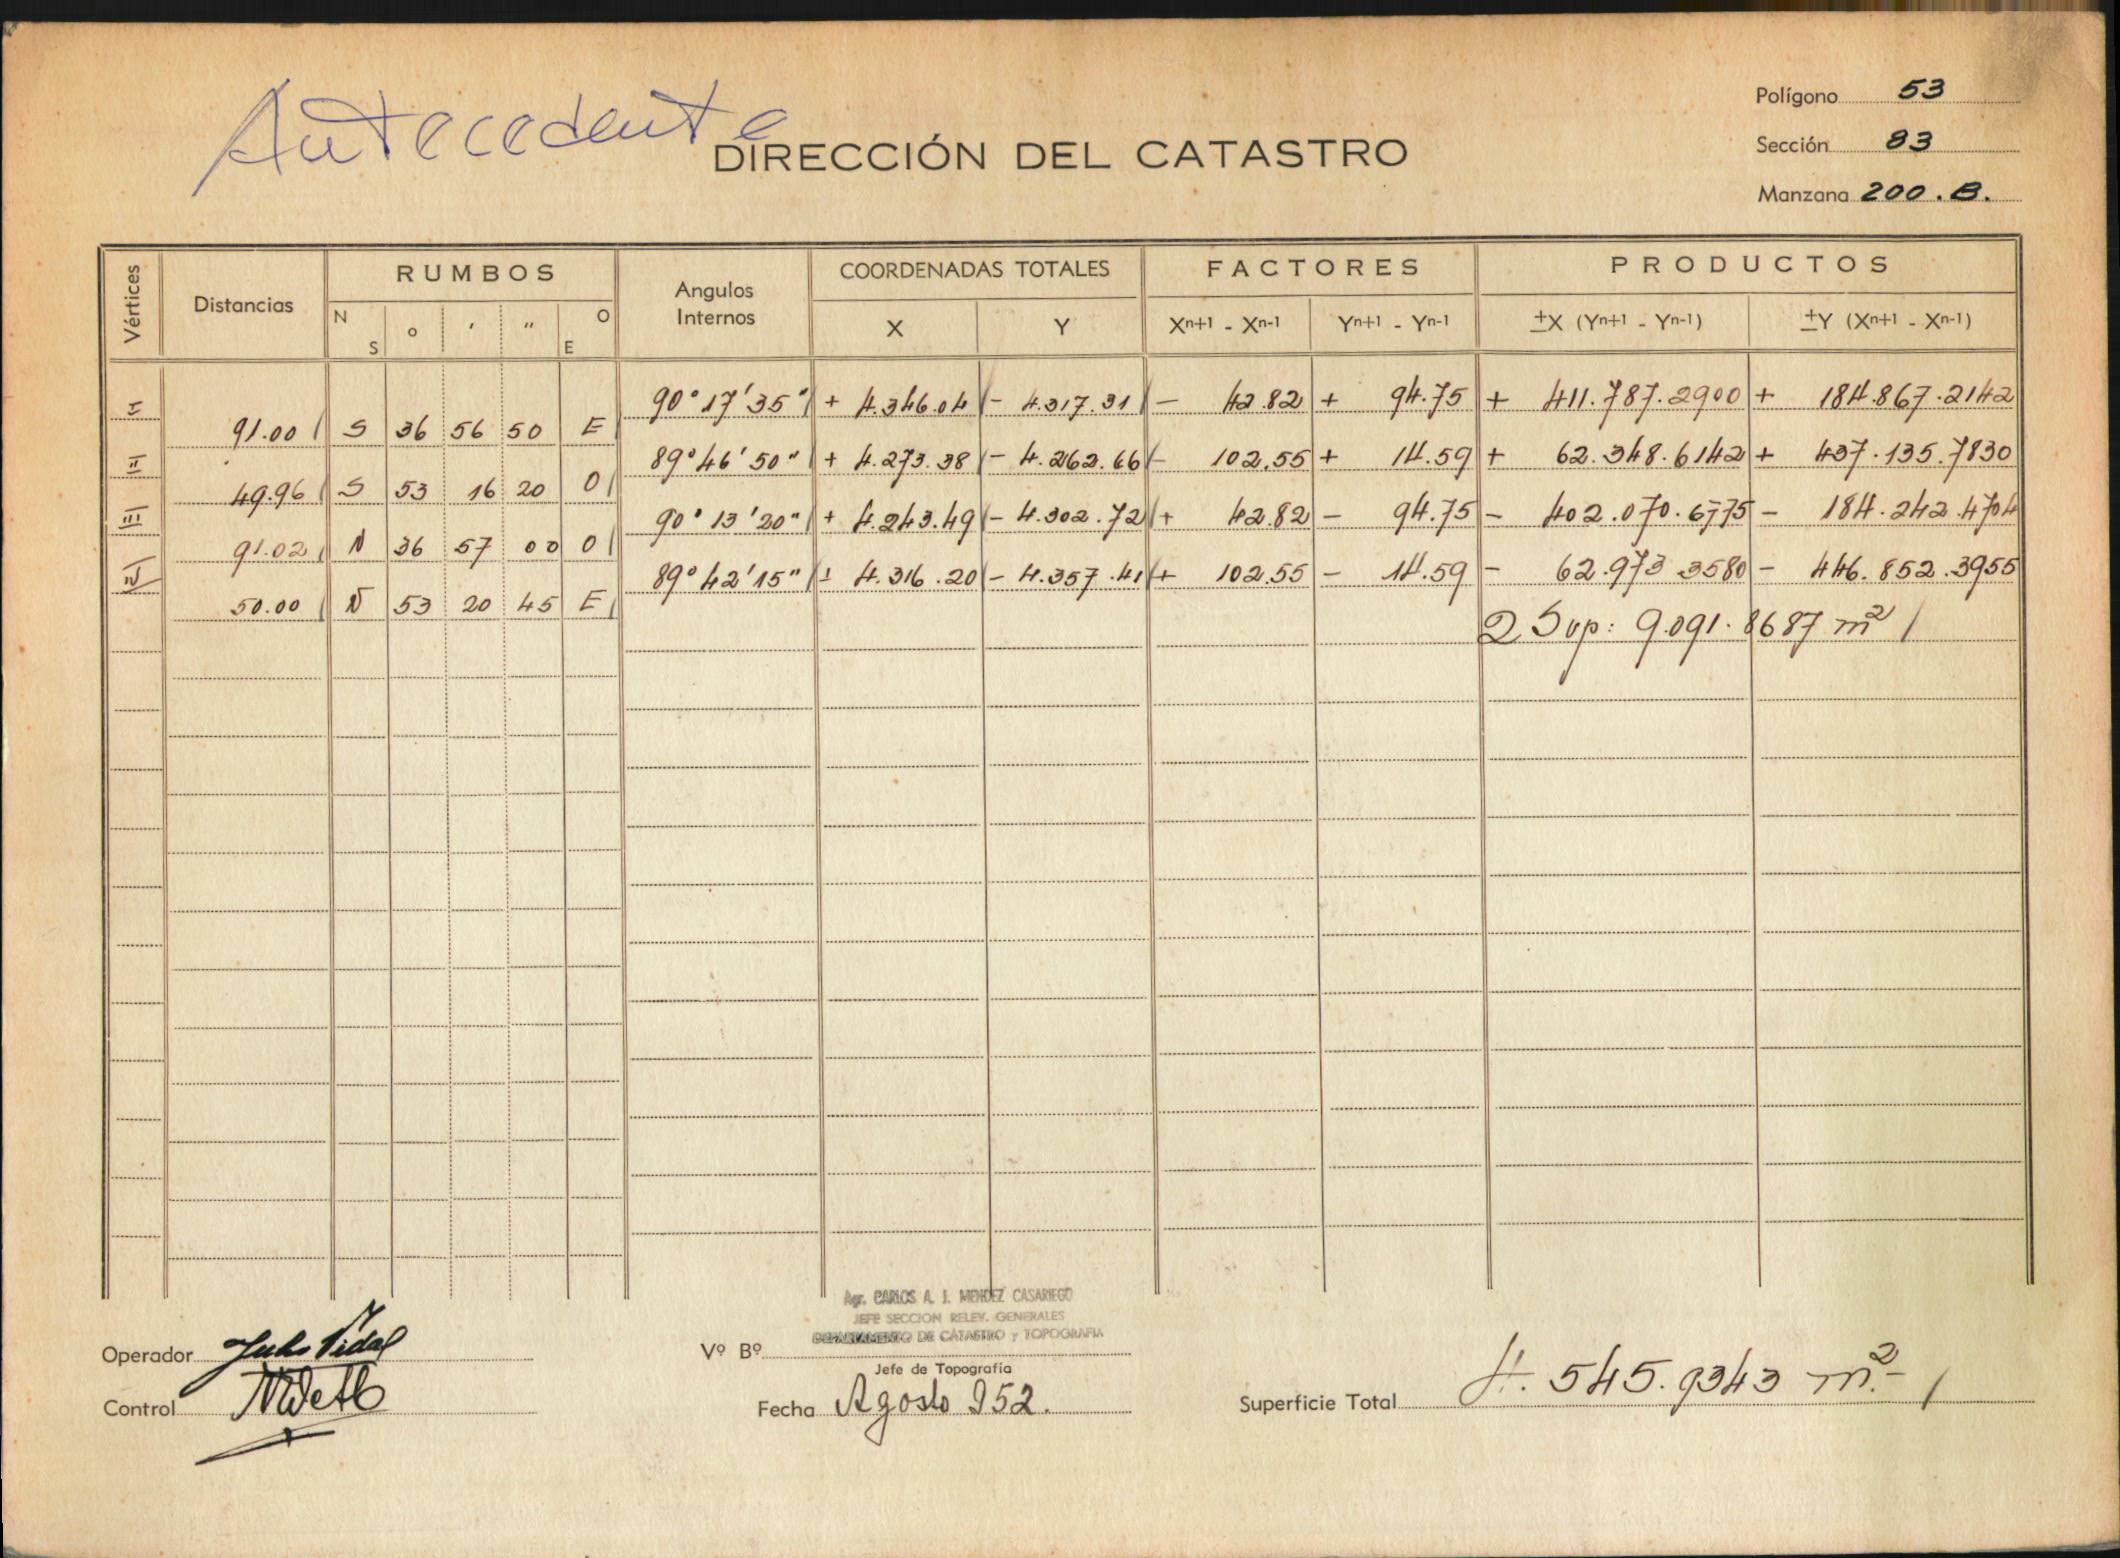 Antecedente
DIRECCIÓN DEL CATASTRO
Polígono 53
Sección 83
Manzana 200.B.
Vértices Distancias RUMBOS Angulos Internos COORDENADAS TOTALES FACTORES PRODUCTOS
N S o ' " O E X Y Xn+1 - Xn-1 Yn+1 - Yn-1 ±X (Yn+1 - Yn-1) ±Y (Xn+1 - Xn-1)
I 90° 17' 35" + 4.346.04 - 4.317.31 - 42.82 + 94.75 + 411.787.2900 + 184.867.2142
91.00 S 36 56 50 E
II 89° 46' 50" + 4.273.38 - 4.262.66 - 102.55 + 14.59 + 62.348.6142 + 437.135.7830
49.96 S 53 16 20 O
III 90° 13' 20" + 4.243.49 - 4.302.72 + 42.82 - 94.75 - 402.070.6775 - 184.242.4704
91.02 N 36 57 00 O
IV 89° 42' 15" + 4.316.20 - 4.357.41 + 102.55 - 14.59 - 62.973 3580 - 446.852.3955
50.00 N 53 20 45 E
2 Sup: 9.091.8687 m2
Agr. CARLOS A. J. MENDEZ CASARIEGO
JEFE SECCION RELEV. GENERALES
DEPARTAMENTO DE CATASTRO y TOPOGRAFIA
Operador Julio Vidal
Vº Bº
Jefe de Topografía
Control
Fecha Agosto 952.
Superficie Total 4.545.9343 m2.-